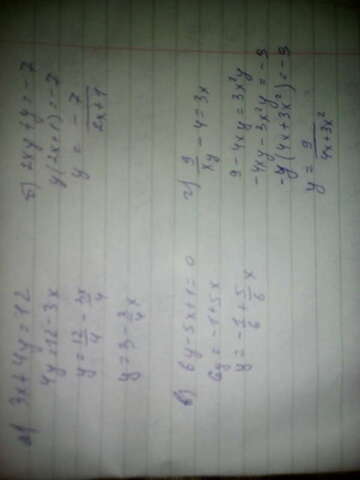 а) 3x + 4y = 12
4y = 12 - 3x
y = 12/4 - 3x/4
y = 3 - 3/4 x
б) 2xy + y = -7
y(2x+1) = -7
y = -7/(2x+1)
в) 6y - 5x + 1 = 0
6y = -1 + 5x
y = -1/6 + 5/6 x
г) 9/xy - 4 = 3x
9 - 4xy = 3x²y
-4xy - 3x²y = -9
-y(4x + 3x²) = -9
y = 9/(4x + 3x²)